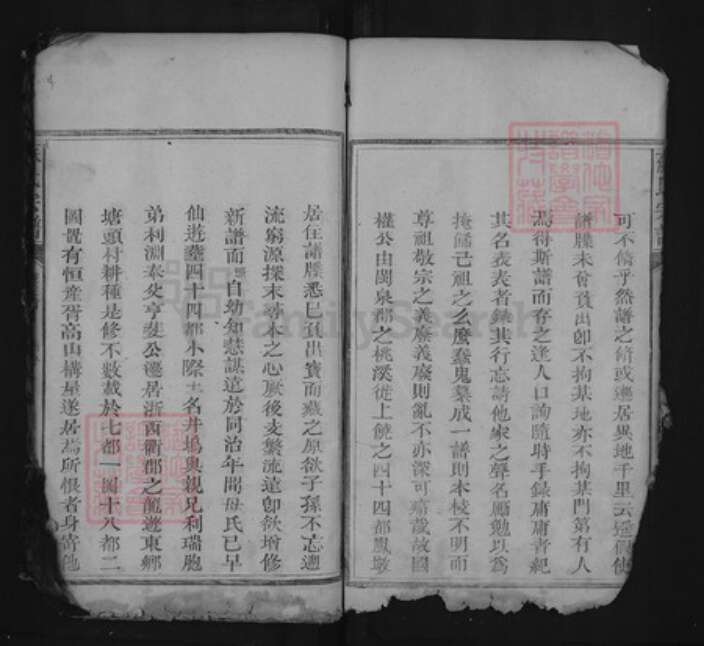 可不脩乎然譜之脩或遷居異地千里云遥倘他
譜牒未曾賫出卽不拘某地亦不拘某門第有人
焉得斯譜而存之逢人口詢隨時手錄庸庸者紀
其名表表者錄其行忘諸他家之聲名厲勉以爲
掩飾己祖之么麽蠢鬼纂成一譜則本枝不明而
尊祖敬宗之義廢義廢則亂不亦深可痛哉故國
權公由閩泉郡之桃溪徙上饒之四十四都鳳墩
居住譜牒悉已賫出寶而藏之原欲子孫不忘遡
流窮源探末尋本之心厥後支繁流遠卽欲增修
新譜而 自幼知慧謀遠於同治年間母氏已早
仙遊塟四十四都小際土名井塢與親兄利瑞胞
弟利淵泰伩亨斐公遷居浙西衢郡之龍遊東鄉
塘頭村耕種是修不數載於七都一圖十八都二
圖置有恒產胥高山構屋遂居焉所恨者身寄他
宗譜
FamilySearch